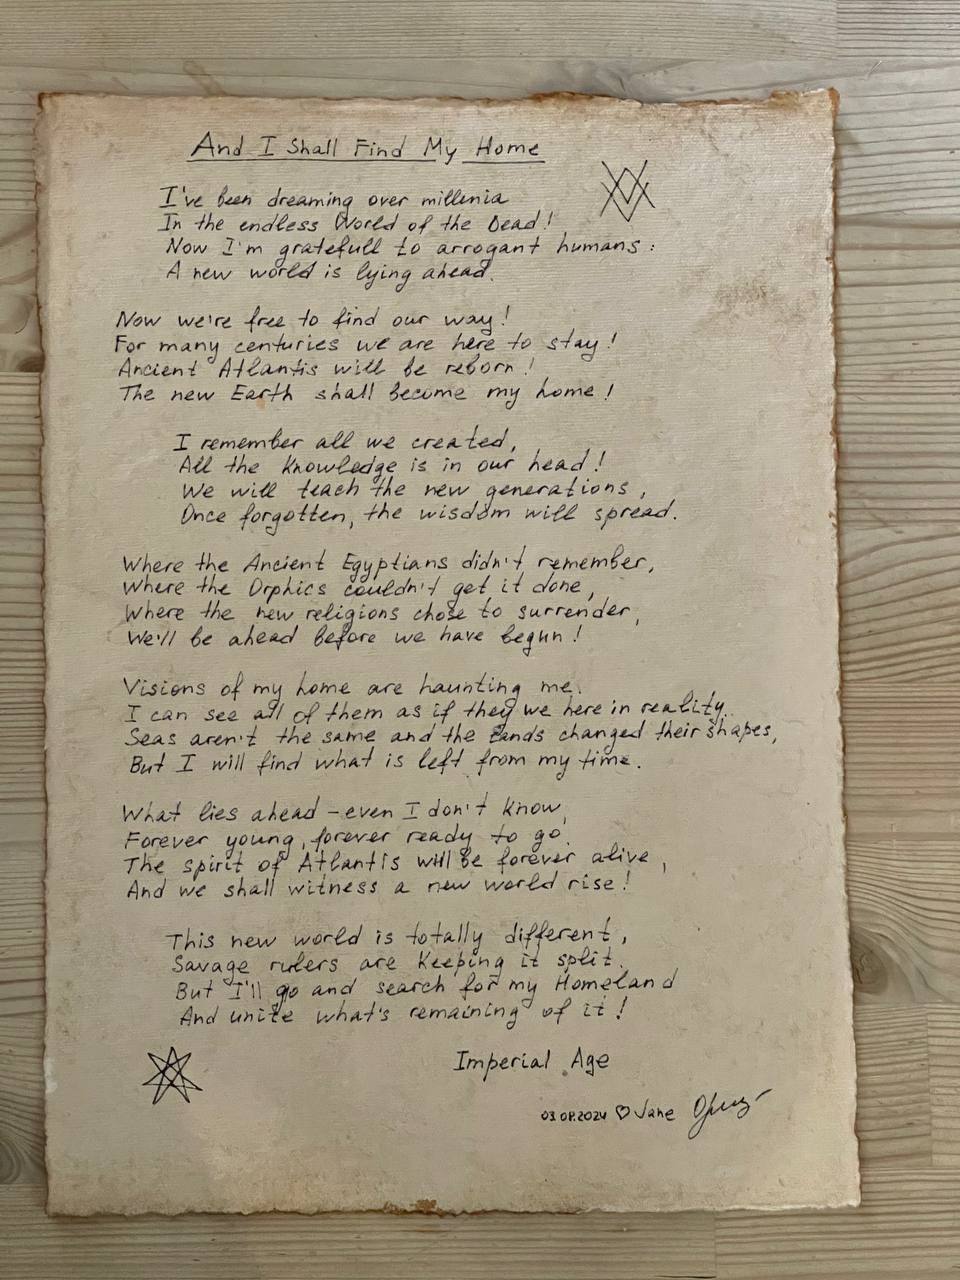 And I Shall Find My Home
I've been dreaming over millenia
In the endless World of the Dead!
Now I'm gratefull to arrogant humans:
A new world is lying ahead.
Now we're free to find our way!
For many centuries we are here to stay!
Ancient Atlantis will be reborn!
The new Earth shall become my home!
I remember all we created,
All the knowledge is in our head!
We will teach the new generations,
Once forgotten, the wisdom will spread.
Where the Ancient Egyptians didn't remember,
Where the Orphics couldn't get it done,
Where the new religions chose to surrender,
We'll be ahead before we have begun!
Visions of my home are haunting me.
I can see all of them as if they we here in reality.
Seas aren't the same and the Lands changed their shapes,
But I will find what is left from my time.
What lies ahead - even I don't know,
Forever young, forever ready to go.
The spirit of Atlantis will be forever alive,
And we shall witness a new world rise!
This new world is totally different,
Savage rulers are keeping it split.
But I'll go and search for my Homeland
And unite what's remaining of it!
Imperial Age
03.08.2024 ♡ Jane